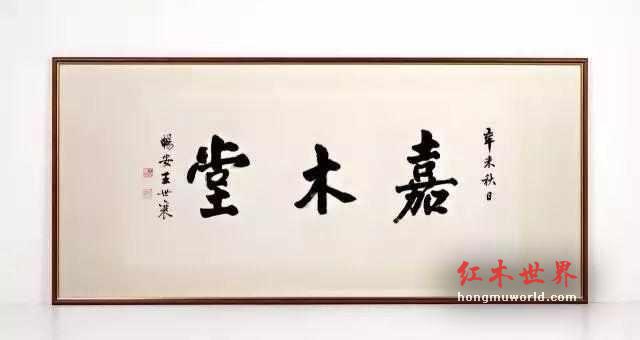 辛未秋日
嘉木堂
暢安王世襄
红木世界
hongmuworld.com